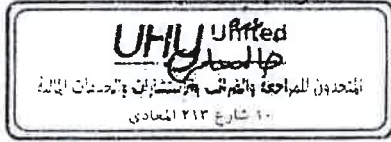 UHY United
المتحدون للمراجعة والضرائب والاستشارات والخدمات المالية
١٠ شارع ٢١٣ المعادى